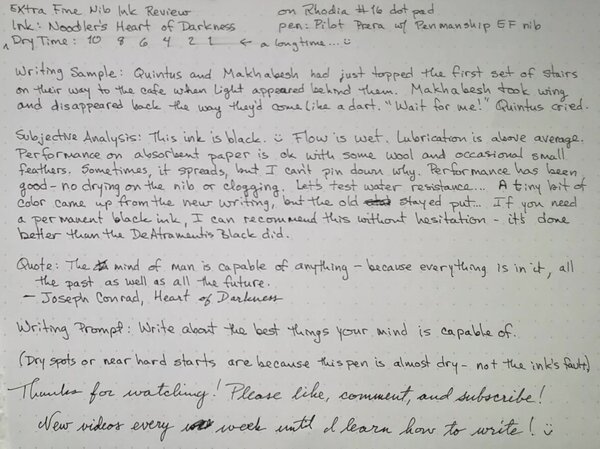 Extra Fine Nib Ink Review on Rhodia #16 dot pad
Ink: Noodler's Heart of Darkness pen: Pilot Prera w/ Penmanship EF nib
Dry Time: 10 8 6 4 2 1 ← a long time... ☺
Writing Sample: Quintus and Makhabesh had just topped the first set of stairs
on their way to the cafe when Light appeared behind them. Makhabesh took wing
and disappeared back the way they'd come like a dart. "Wait for me!" Quintus cried.
Subjective Analysis: This ink is black. ☺ Flow is wet. Lubrication is above average.
Performance on absorbent paper is ok with some wool and occasional small
feathers. Sometimes, it spreads, but I can't pin down why. Performance has been
good - no drying on the nib or clogging. Let's test water resistance... A tiny bit of
color came up from the new writing, but the old stayed put... If you need
a permanent black ink, I can recommend this without hesitation - it's done
better than the DeAtramentis Black did.
Quote: The mind of man is capable of anything - because everything is in it, all
the past as well as all the future.
- Joseph Conrad, Heart of Darkness
Writing Prompt: Write about the best things your mind is capable of.
(Dry spots or near hard starts are because this pen is almost dry - not the ink's fault)
Thanks for watching! Please like, comment, and subscribe!
New videos every week until I learn how to write! ☺